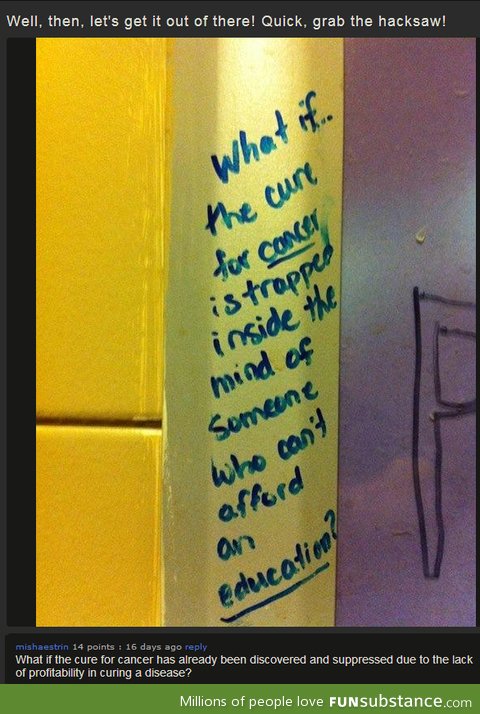 Well, then, let's get it out of there! Quick, grab the hacksaw!
What if...
the cure
for cancer
is trapped
inside the
mind of
someone
who can't
afford
an
education?
mishaestrin 14 points : 16 days ago reply
What if the cure for cancer has already been discovered and suppressed due to the lack
of profitability in curing a disease?
Millions of people love FUNsubstance.com